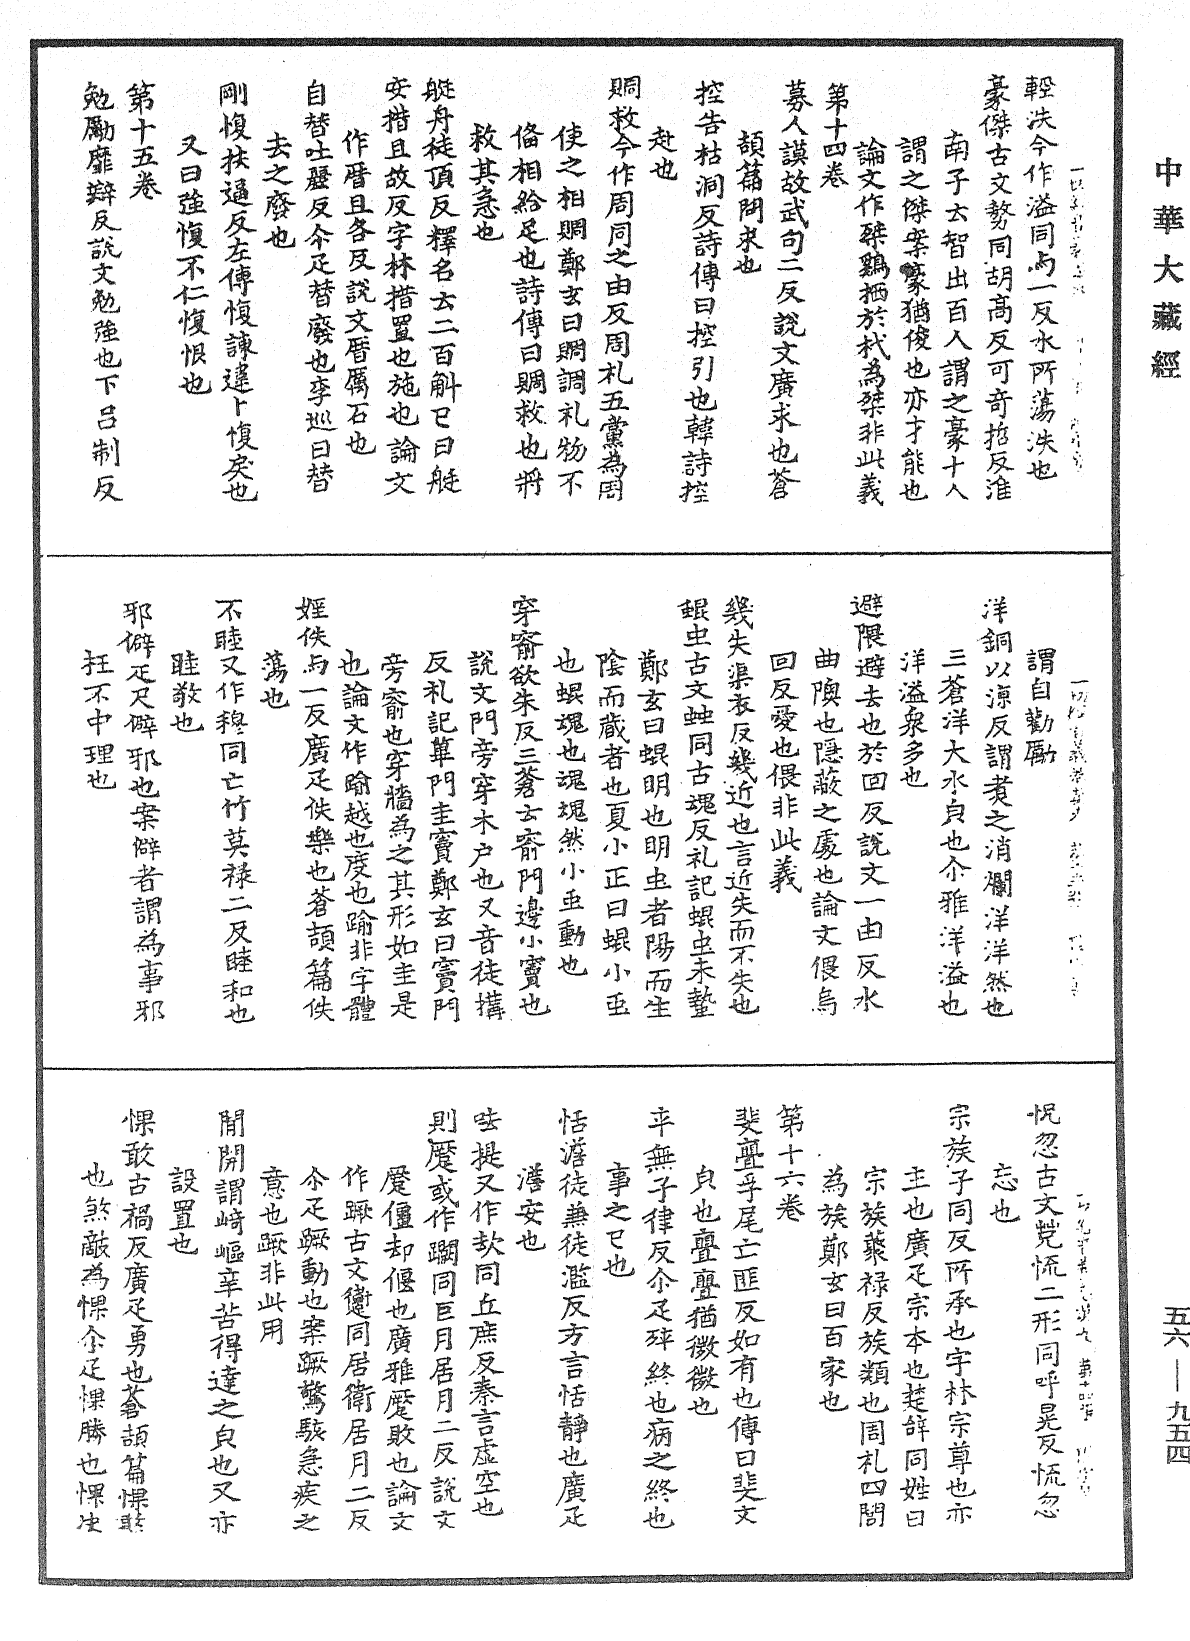 中華大藏經
五六—九五四
輕泆今作溢同与一反水所蕩泆也
豪傑古文勢同胡高反可奇哲反淮
南子云智出百人謂之豪十人
謂之傑案豪猶俊也亦才能也
論文作桀鷄栖於杙為桀非此義
第十四卷
募人謨故武句二反說文廣求也蒼
頡篇問求也
控告枯洞反詩傳曰控引也韓詩控
赴也
賙救今作周同之由反周礼五黨為𦊨
使之相賙鄭玄曰賙調礼物不
俻相給足也詩傳曰賙救也將
救其急也
艇舟徒頂反釋名云二百斛已曰艇
安措且故反字林措置也施也論文
作厝且各反說文厝厲石也
自替吐㬱反尒疋替廢也李巡曰替
去之廢也
剛愎扶逼反左傳愎諫違卜愎戾也
又曰強愎不仁愎恨也
第十五卷
勉勵靡辯反說文勉強也下呂制反
謂自勸勵
洋銅以涼反謂煑之消爛洋洋然也
三蒼洋大水皃也尒雅洋溢也
洋溢衆多也
避隈避去也於回反說文一由反水
曲隩也隱蔽之處也論文偎烏
回反愛也偎非此義
幾失渠衣反幾近也言近失而不失也
蜫虫古文䖵同古魂反礼記蜫虫未蟄
鄭玄曰蜫明也明虫者陽而生
陰而藏者也夏小正曰蜫小䖝
也蜫魂也魂魂然小䖝動也
穿窬欲朱反三蒼云窬門邊小竇也
說文門旁穿木户也又音徒搆
反礼記蓽門圭竇鄭玄曰竇門
旁窬也穿牆為之其形如圭是
也論文作踰越也度也踰非字體
婬佚与一反廣疋佚樂也蒼頡篇佚
蕩也
不睦又作穆同亡竹莫祿二反睦和也
睦敬也
邪僻疋尺僻邪也案僻者謂為事邪
枉不中理也
怳忽古文㲿㤺二形同呼晃反㤺忽
忘也
宗族子同反所承也字林宗尊也亦
主也廣疋宗本也楚辞同姓曰
宗族藂祿反族類也周礼四閭
為族鄭玄曰百家也
第十六卷
斐亹孚尾亡匪反如有也傳曰斐文
皃也亹亹猶微微也
卒無子律反尒疋卒終也病之終也
事之已也
恬澹徒兼徒濫反方言恬靜也廣疋
澹安也
呿提又作㰦同丘庶反秦言虛空也
則蹷或作𨇮同巨月居月二反說文
蹷僵却偃也廣雅蹷敗也論文
作蹶古文㔃同居衛居月二反
尒疋蹶動也案蹶驚駭急疾之
意也蹶非此用
開謂崎嶇辛苦得達之皃也又亦
設置也
惈敢古禍反廣疋勇也蒼頡篇惈敢
也煞敵為惈尒疋惈勝也惈决